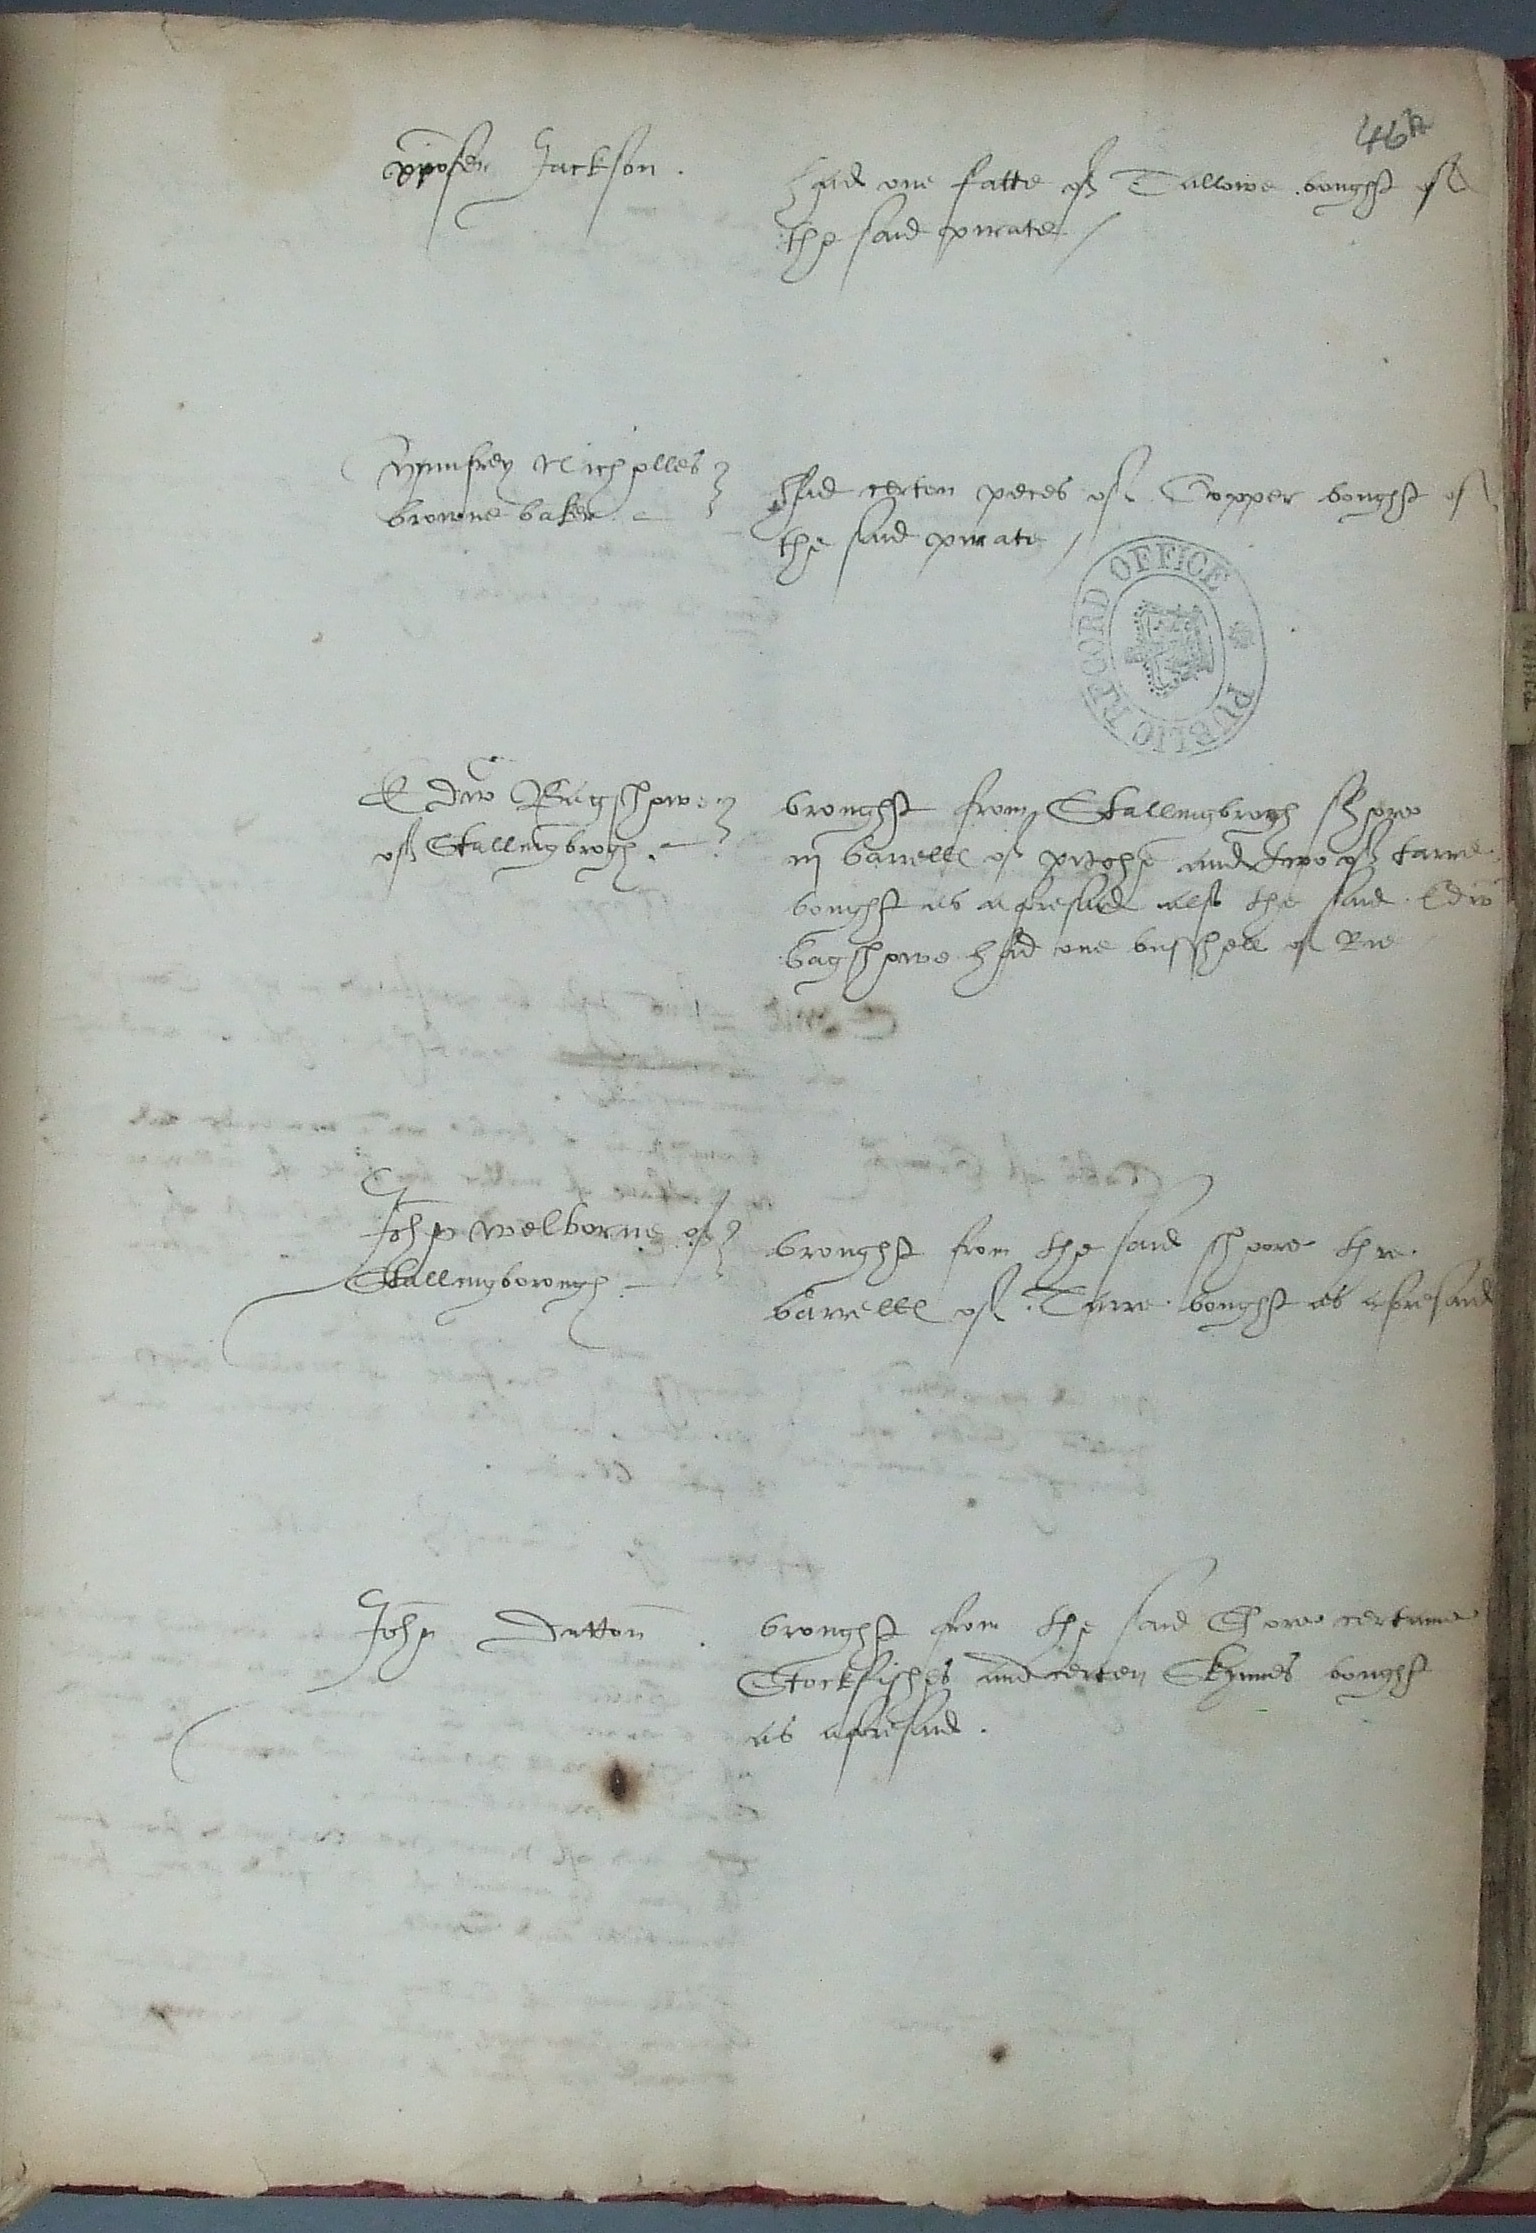 46
Jackson .
had one fatte of Tallowe bought of
the said pirate /
Humfrey Nicholles
browne baker
had certen peces of Copper bought of
the said pirate /
PUBLIC RECORD OFFICE
Edw Bagshowe
of Stallingbrogh .
brought from Stallingbrogh shore
iij barrell of pitche and two of tarre
bought as afforesaid also the said Edw
bagshowe had one busshell of Rie
John welborne of
Stallingborough .
brought from the said shoore thre
barrelll of Tarre bought as aforesaid
John Dutton .
brought from the said shore certaine
Stockfishes and certen Skynnes bought
as aforesaid .